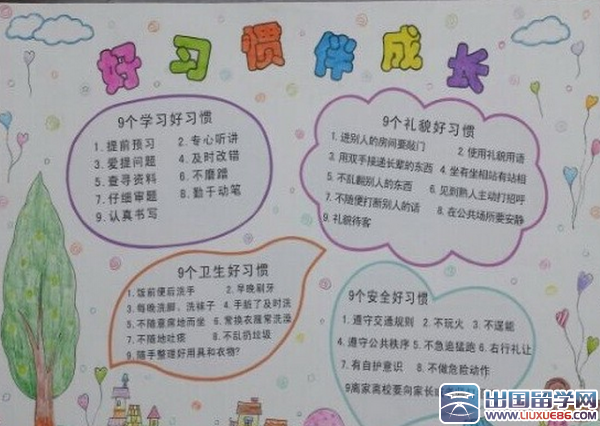 好习惯伴成长
9个学习好习惯
1. 提前预习 2. 专心听讲
3. 爱提问题 4. 及时改错
5. 查寻资料 6. 不磨蹭
7. 仔细审题 8. 勤于动笔
9. 认真书写
9个礼貌好习惯
1. 进别人的房间要敲门 2. 使用礼貌用语
3. 用双手接递长辈的东西 4. 坐有坐相站有站相
5. 不乱翻别人的东西 6. 见到熟人主动打招呼
7. 不随便打断别人的话 8. 在公共场所要安静
9. 礼貌待客
9个卫生好习惯
1. 饭前便后洗手 2. 早晚刷牙
3. 每晚洗脚、洗袜子 4. 手脏了及时洗
5. 不随意席地而坐 6. 常换衣履常洗澡
7. 不随地吐痰 8. 不乱扔垃圾
9. 随手整理好用具和衣物?
9个安全好习惯
1. 遵守交通规则 2. 不玩火 3. 不逞能
4. 遵守公共秩序 5. 不急追猛跑 6. 右行礼让
7. 有自护意识 8. 不做危险动作
9离家离校要向家长
出国留学网
WWW.LIUXUE86.COM